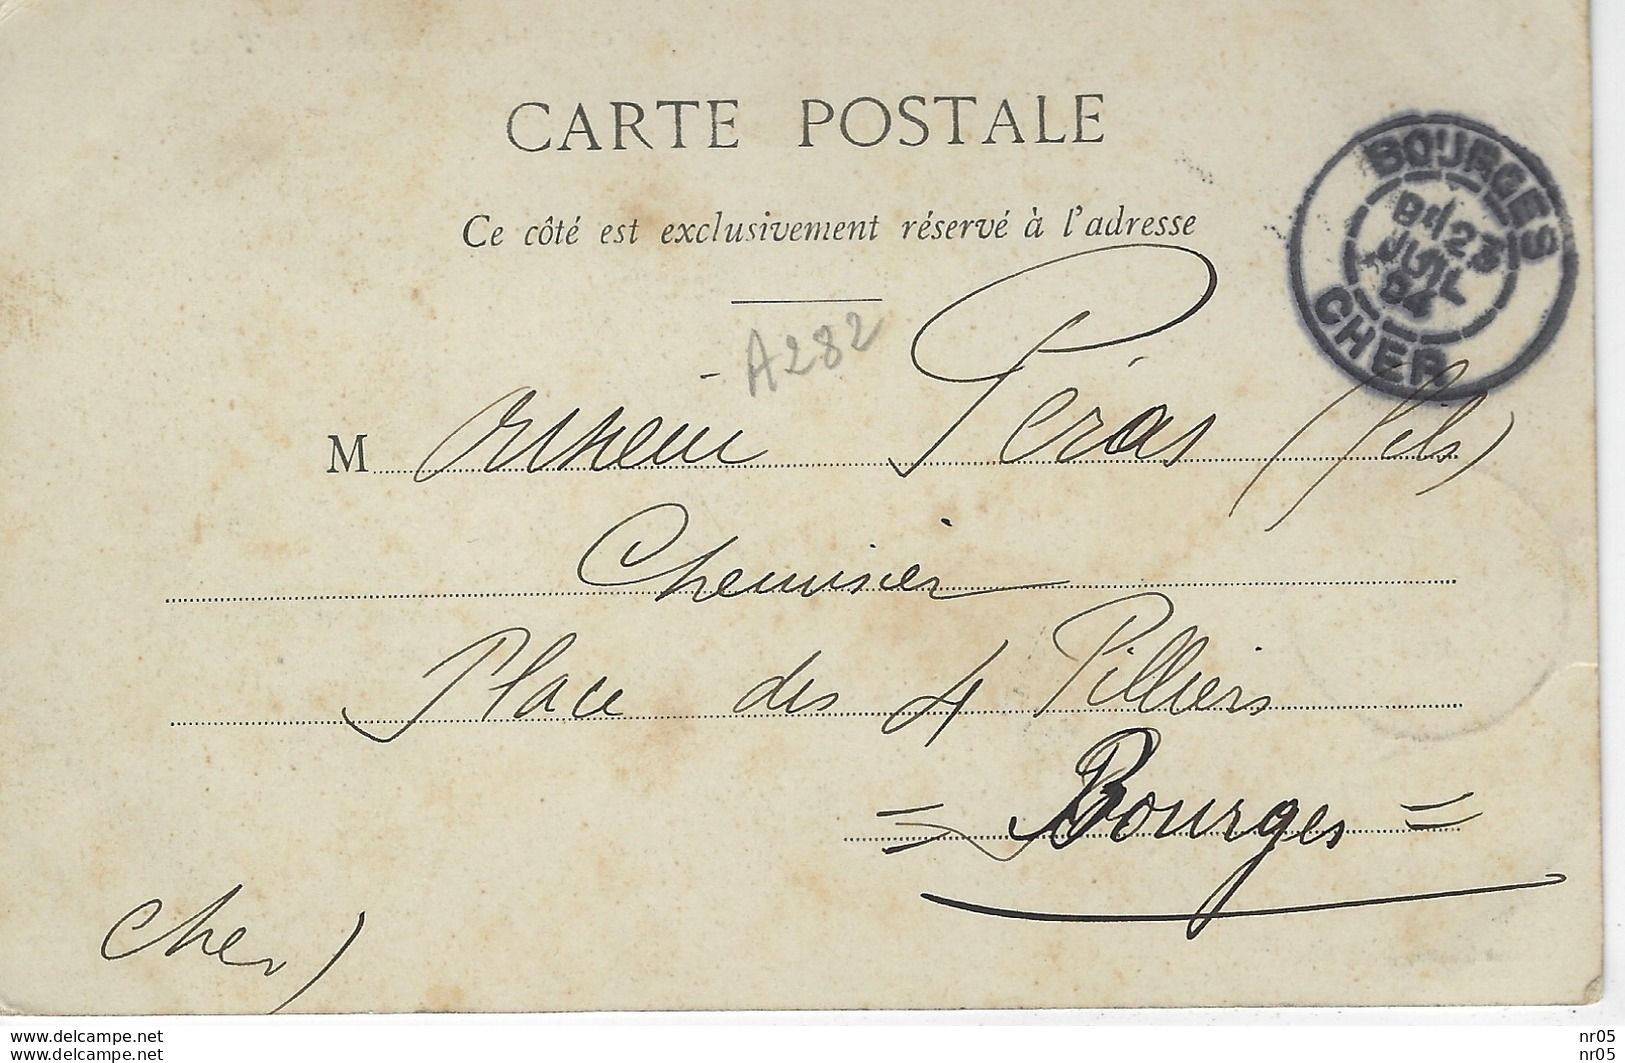 CARTE POSTALE
Ce côté est exclusivement réservé à l'adresse
BOURGES
23
JUIL
04
CHER
A282
Monsieur Péras (fils)
Chemisier
Place des 4 Pilliers
= Bourges =
Cher)
www.delcampe.net
www.delcampe.net
nr05
nr05